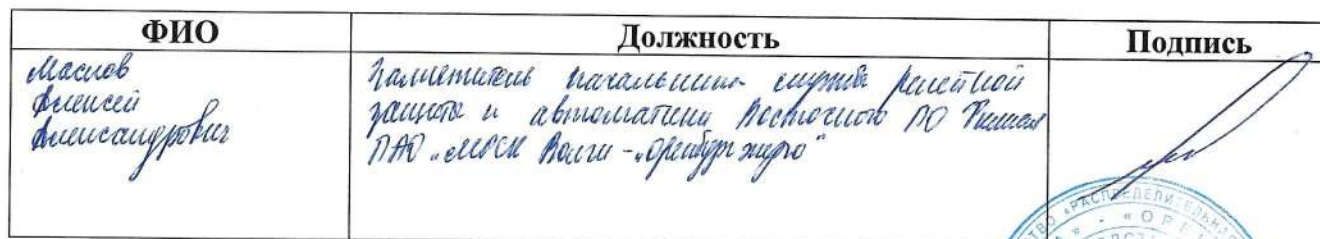 ФИО Должность Подпись
Маслов
Алексей
Александрович
Заместитель начальника службы релейной
защиты и автоматики Восточного ПО Филиал
ПАО "МРСК Волги - "Оренбургэнерго"
ТВО «РАСПРЕДЕЛИТЕЛЬНАЯ
- «ОРЕ